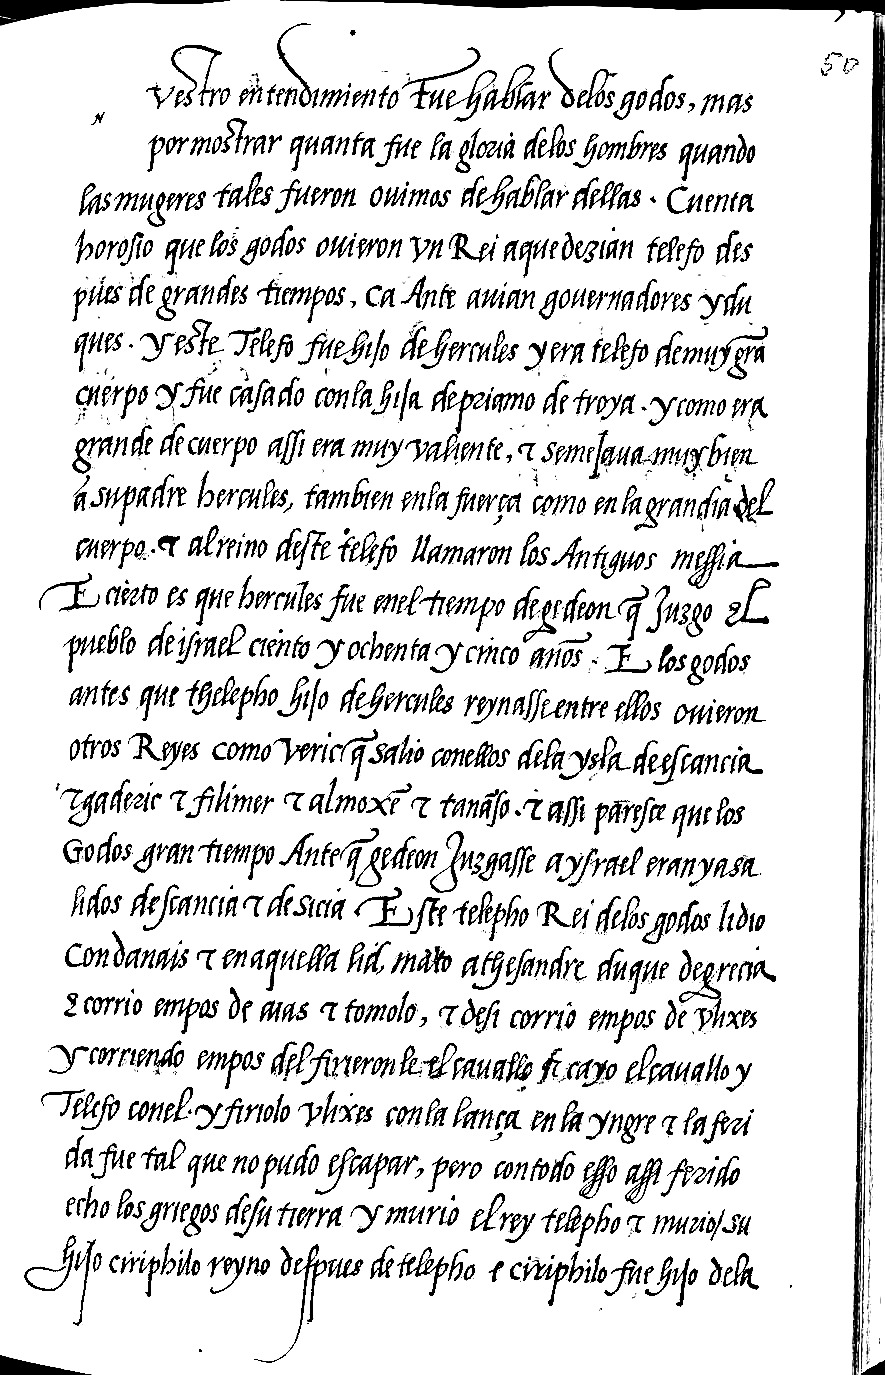 50
vestro entendimiento fue hablar delos godos, mas
por mostrar quanta fue la gloria delos hombres quando
las mugeres tales fueron ouimos de hablar dellas. Cuenta
horosio que los godos ouieron vn Rei aque dezian telefo des
pues de grandes tiempos, ca Ante auian gouernadores y du
ques. y este Telefo fue hijo de hercules y era telefo de muy grã
cuerpo y fue casado con la hija de priamo de troya. y como era
grande de cuerpo assi era muy valiente, & semejaua muy bien
a su padre hercules, tambien en la fuerça como en la grandia del
cuerpo. & al reino deste telefo llamaron los Antiguos messia
E cierto es que hercules fue enel tiempo de gedeon q̃ Juzgo el
pueblo de israel ciento y ochenta y cinco años. E los godos
antes que thelepho hijo de hercules reynasse entre ellos ouieron
otros Reyes como veric q̃ salio conellos dela ysla de escancia
& gaderic & filimer & almoxẽ & tanaso. & assi paresce que los
Godos gran tiempo Ante q̃ gedeon Juzgasse a ysrael eran ya sa
lidos descancia & de sicia Este telepho Rei delos godos lidio
Con danais & en aquella lid, mato a thesandre duque de grecia
& corrio empos de aias & tomolo, & desi corrio empos de vlixes
y corriendo empos del firieronle el cauallo & cayo el cauallo y
Telefo conel. y firiolo vlixes con la lança en la yngre & la feri
da fue tal que no pudo escapar, pero con todo esso assi ferido
echo los griegos de su tierra y murio el rey telepho & murio/ su
hijo ciriphilo reyno despues de telepho e ciriphilo fue hijo dela